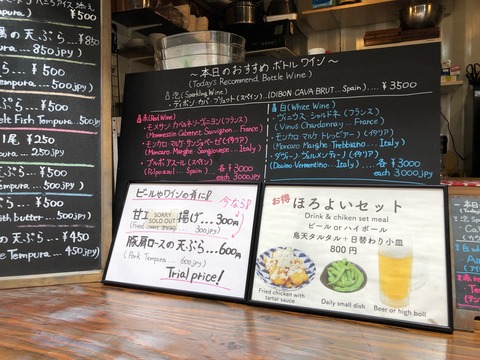 ¥500
pura...500jpy
風の天ぷら...¥850
mpura...850jpy
ぷら...¥500
ra...500jpy
天ぷら...¥500
Belt Fish Tempura...500jpy
1尾...¥250
...¥500
...500jpy
...¥500
with butter...500jpy
ぷら...¥450
Tempura...450jpy
～本日のおすすめボトルワイン～
(Today's Recommend, Bottle Wine)
泡(Sparkling Wine)
・ディボン・カバ・ブリュット(スペイン)...(DIBON CAVA BRUT...Spain)... ¥3500
赤(Red Wine)
・モメサン カベルネソーヴィニヨン(フランス)
(Mommessin Cabernet Sauvignon...France)
・モンカロ マルケ サンジョベーゼ(イタリア)
(Moncaro Marghe Sangiovese...Italy)
・プルポアスール(スペイン)
(Pulpo azul...Spain)
各¥3000
each 3000jpy
白(White Wine)
・ヴィニウス・シャルドネ(フランス)
(Vinus Chardonnay...France)
・モンカロ マルケ トレッビアーノ(イタリア)
(Moncaro Marghe Trebbiano...Italy)
・ダヴィーノ ヴェルメンティーノ(イタリア)
(Davino Vermentino...Italy)
各¥3000
each 3000jpy
ビールやワインの肴に!!
今ならSP
甘エ 揚げ...300円
SORRY
SOLD OUT
(Fried sweet shrimp)
豚肩ロースの天ぷら...600円
(Pork Tempura...600yen)
Trial price!
お得
ほろよいセット
Drink & chiken set meal
ビール or ハイボール
鳥天タルタル+日替わり小皿
800円
Fried chicken with
tartar sauce
Daily small dish
Beer or high boll